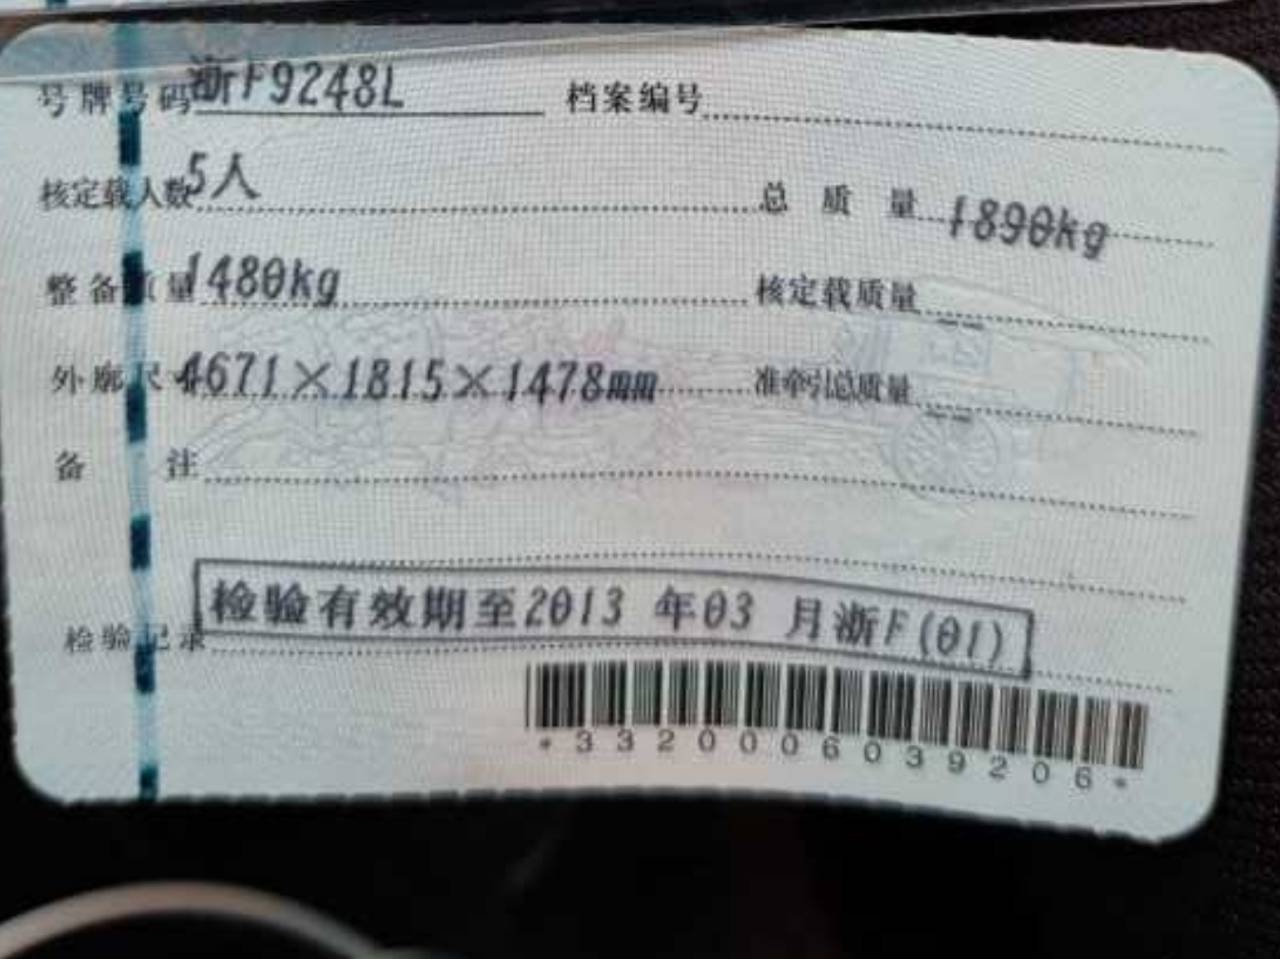 号牌号码 浙F9248L 档案编号
核定载人数 5人 总质量 1890kg
整备质量 1480kg 核定载质量 --
外廓尺寸 4671×1815×1478mm 准牵引总质量 --
备注
检验记录 检验有效期至2013年03月浙F(01)
*3320006039206*